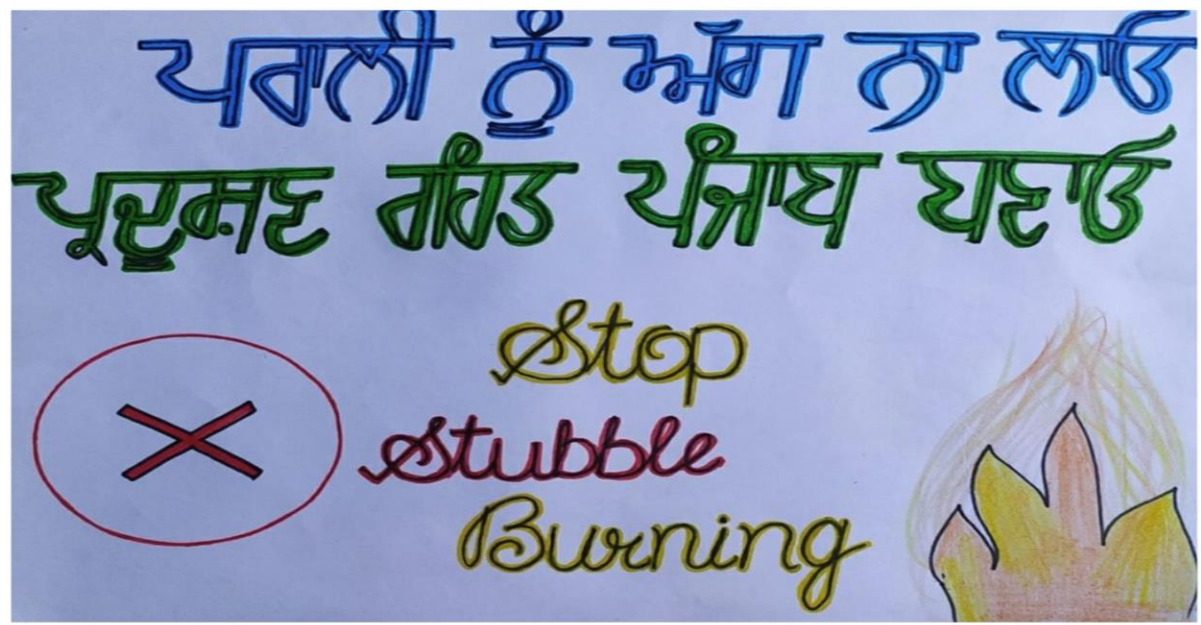 ਪਰਾਲੀ ਨੂੰ ਅੱਗ ਨਾ ਲਾਓ
ਪ੍ਰਦੂਸ਼ਣ ਰਹਿਤ ਪੰਜਾਬ ਬਣਾਓ
Stop
Stubble
Burning